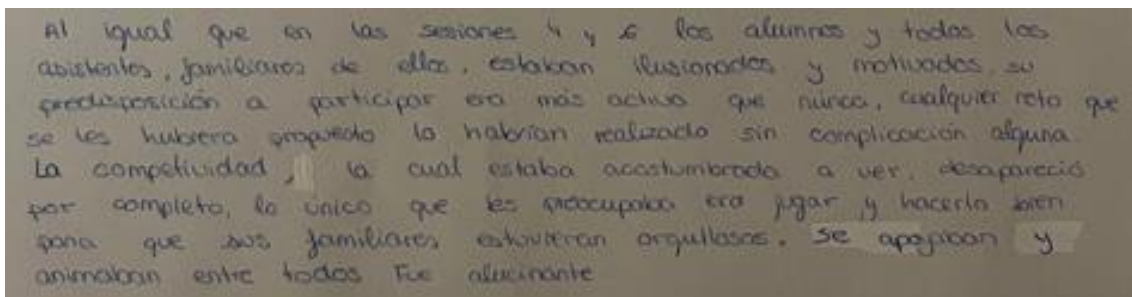 Al igual que en las sesiones 4 y 6 los alumnos y todos los
asistentes, familiares de ellos, estaban ilusionados y motivados, su
predisposición a participar era más activa que nunca, cualquier reto que
se les hubiera propuesto lo habrían realizado sin complicación alguna.
La competividad, la cual estaba acostumbrada a ver, desapareció
por completo, lo único que les preocupaba era jugar y hacerlo bien
para que sus familiares estuvieran orgullosos. Se apoyaban y
animaban entre todos Fue alucinante